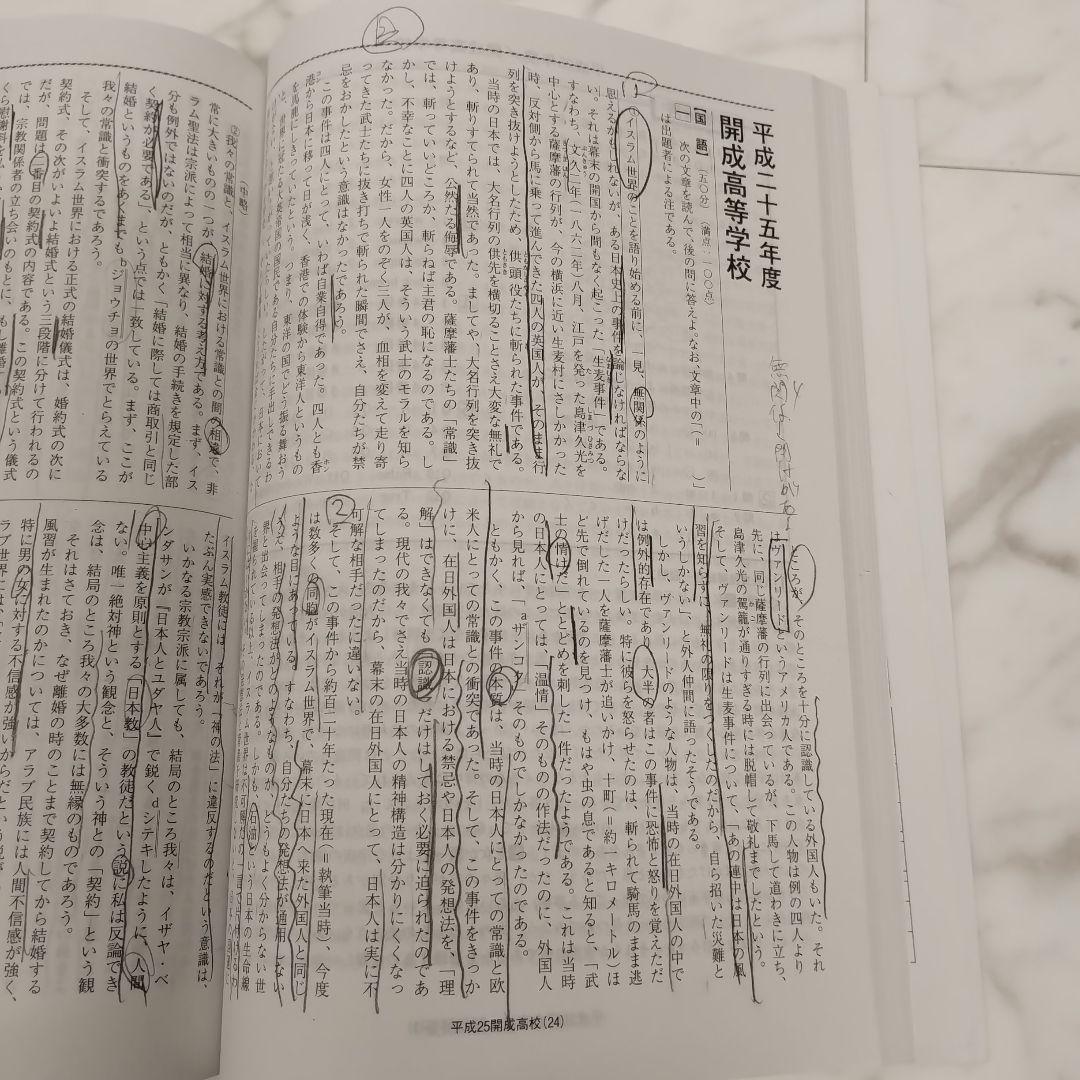 平成二十五年度
開成高等学校
【国語】(五〇分)〈満点:一〇〇点〉
一 次の文章を読んで、後の問に答えよ。なお、文章中の(= )
は出題者による注である。
イスラム世界のことを語り始める前に、一見、無関係のように
思えるかもしれないが、ある日本史上の事件を論じなければならな
い。それは幕末の開国から間もなく起こった「生麦事件」である。
すなわち、文久二年(一八六二年)八月、江戸を発った島津久光を
中心とする薩摩藩の行列が、今の横浜に近い生麦村にさしかかった
時、反対側から馬に乗って進んできた四人の英国人が、そのまま行
列を突き抜けようとしたため、供頭役たちに斬られた事件である。
当時の日本では、大名行列の供先を横切ることさえ大変な無礼で
あり、斬りすてられて当然であった。ましてや、大名行列を突き抜
けようとするなど、公然たる侮辱である。薩摩藩士たちの「常識」
では、斬っていいどころか、斬らねば主君の恥になるのである。し
かし、不幸なことに四人の英国人は、そういう武士のモラルを知ら
なかった。だから、女性一人をのぞく三人が、血相を変えて走り寄
ってきた武士たちに抜き打ちで斬られた瞬間でさえ、自分たちが禁
忌をおかしたという意識はなかったであろう。
この事件は四人にとって、いわば自業自得であった。四人とも香
港から日本に移って日が浅く、香港での体験から東洋人というもの
つまり、東洋の国でどう振る舞おう
ところが、そのところを十分に認識している外国人もいた。それ
はヴァンリードというアメリカ人である。この人物は例の四人より
先に、同じ薩摩藩の行列に出会っているが、下馬して道わきに立ち、
島津久光の駕籠が通りすぎる時には脱帽して敬礼までしたという。
そして、ヴァンリードは生麦事件について、「あの連中は日本の風
習を知らずに、無礼の限りをつくしたのだから、自ら招いた災難と
いうしかない」、と外人仲間に語ったそうである。
しかし、ヴァンリードのような人物は、当時の在日外国人の中で
は例外的存在であり、大半の者はこの事件に恐怖と怒りを覚えただ
けだったらしい。特に彼らを怒らせたのは、斬られて騎馬のまま逃
げだした一人を薩摩藩士が追いかけ、十町(=約一キロメートル)ほ
ど先で倒れているのを見つけ、もはや虫の息であると知ると、「武
士の情けだ」ととどめを刺した一件だったようである。これは当時
の日本人にとっては、「温情」そのものの作法だったのに、外国人
から見れば、「aザンコク」そのものでしかなかったのである。
ともかく、この事件の本質は、当時の日本人にとっての常識と欧
米人にとっての常識との衝突であった。そして、この事件をきっか
けに、在日外国人は日本における禁忌や日本人の発想法を、「理
解」はできなくても「認識」だけはしておく必要に迫られたのであ
る。現代の我々でさえ当時の日本人の精神構造は分かりにくくなっ
てしまったのだから、幕末の在日外国人にとって、日本人は実に不
可解な相手だったに違いない。
そして、この事件から約百二十年たった現在(=執筆当時)、今度
は数多くの同胞がイスラム世界で、幕末に日本へ来た外国人と同じ
ような目にあっている。すなわち、自分たちの発想法が通用しない
(中略)
②我々の常識と、イスラム世界における常識との間の相違で、非
常に大きいものの一つが、結婚に対する考え方である。まず、イス
ラム聖法は宗派によって相当に異なり、結婚の手続きを規定した部
分も例外ではないのだが、ともかく「結婚に際しては商取引と同じ
く契約が必要である」、という点では一致している。まず、ここが
結婚というものをあくまでもbジョウチョの世界でとらえている
我々の常識と衝突するであろう。
そして、イスラム世界における正式の結婚儀式は、婚約式の次に
契約式、その次がいよいよ結婚式という三段階に分けて行われるの
だが、問題は二番目の契約式の内容である。この契約式という儀式
では、宗教関係者の立ち会いのもとに、もし離婚
イスラム教徒には、それが「神の法」に違反するのだという意識は、
たぶん実感できないであろう。
いかなる宗教宗派に属しても、結局のところ我々は、イザヤ・ベ
ンダサンが『日本人とユダヤ人』で鋭くdシテキしたように、人間
中心主義を原則とする「日本教」の教徒だという説に私は反論でき
ない。唯一絶対神という観念と、そういう神との「契約」という観
念は、結局のところ我々の大多数には無縁のものであろう。
それはさておき、なぜ離婚の時のことまで契約してから結婚する
風習が生まれたのかについては、アラブ民族には人間不信感が強く、
特に男の女に対する不信感が強いからだという説が
平成25開成高校(24)